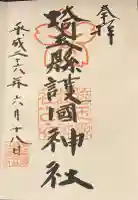 奉拝
埼玉縣護國神社
平成二十八年六月十八日